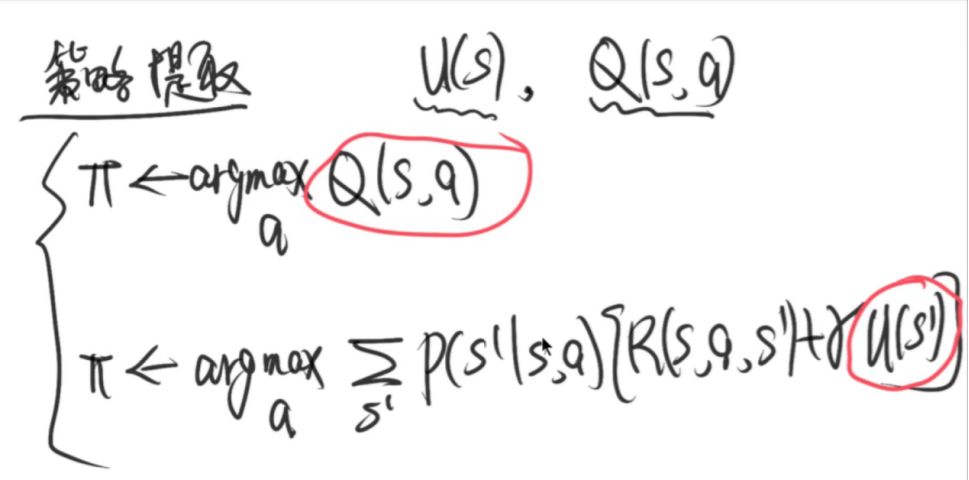 策略提取 U(s), Q(s,a)
π ← argmax Q(s,a)
a
π ← argmax Σ P(s'|s,a)[R(s,a,s')+γU(s')]
a s'